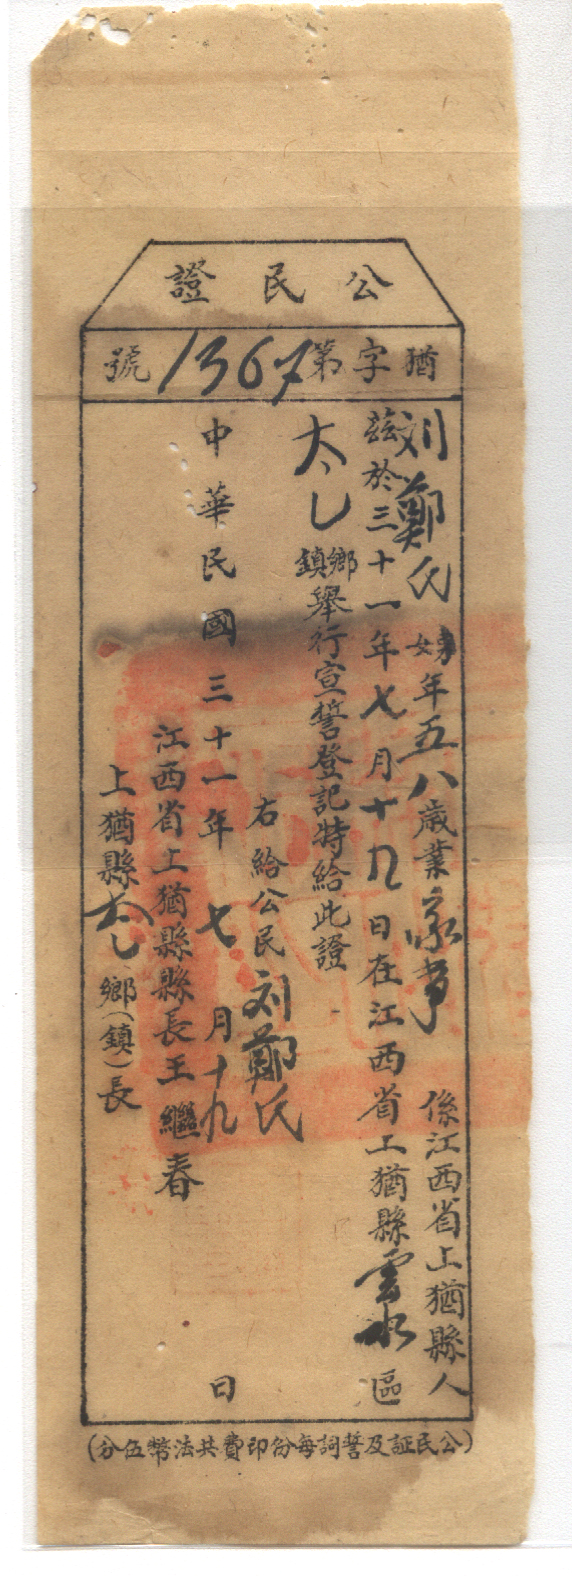 公民證
猶字第1367號
刘鄭氏 年五八歲業家事 係江西省上猶縣人
茲於三十一年七月十九日在江西省上猶縣雲水區
太乙鄉鎮舉行宣誓登記特給此證
右給公民刘鄭氏
中華民國三十一年七月十九日
江西省上猶縣縣長王繼春
上猶縣太乙鄉(鎮)長
(公民証及誓詞每份印費共法幣伍分)